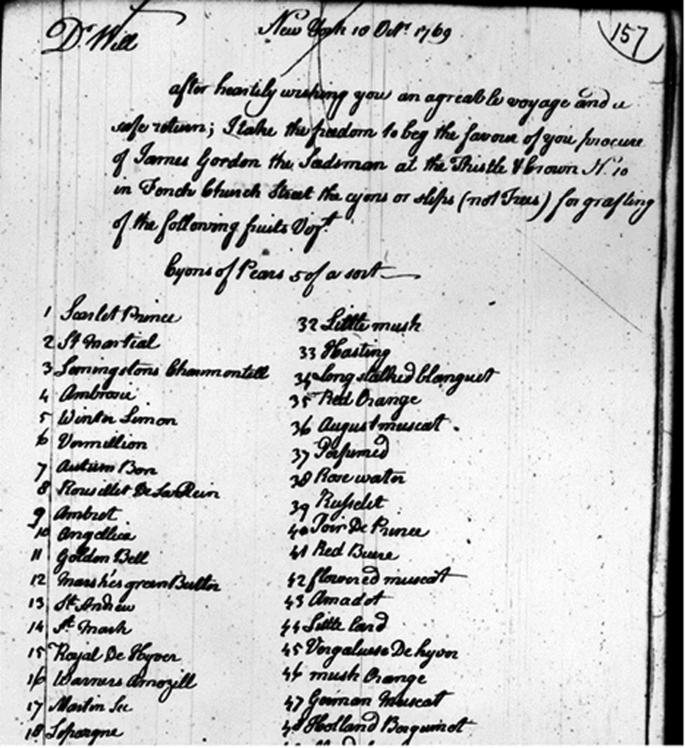 157
New York 10 Octr. 1769
Dr. Will
after heartily wishing you an agreable voyage and a
safe return; I take the freedom to beg the favour of you procure
of James Gordon the Sedsman at the Thistle & Crown No. 10
in Fench Church Street the cyons or slips (not Trees) for grafting
of the following fruits Vizt.
Cyons of Pears 5 of a sort
1 Scarlet Prince
2 St Martial
3 Lemingstons Chaumontell
4 Ambrosie
5 Winter Lemon
6 Vermillion
7 Autium Bon
8 Rousillet De La Rein
9 Ambret
10 Angellica
11 Golden Bell
12 Marshes green Butter
13 St. Andrew
14 St. Mark
15 Royal De Hyver
16 Warners Amozill
17 Martin Sec
18 Lepargne
32 Little musk
33 Hasting
34 Long stalked blanquet
35 Red Orange
36 August muscat
37 Perfumed
38 Rose water
39 Russelet
40 Poir De Prince
41 Red Buere
42 flowered muscat
43 Amadot
44 Little lard
45 Vergaluse De hyver
46 musk Orange
47 German Muscat
48 Holland Borguinot